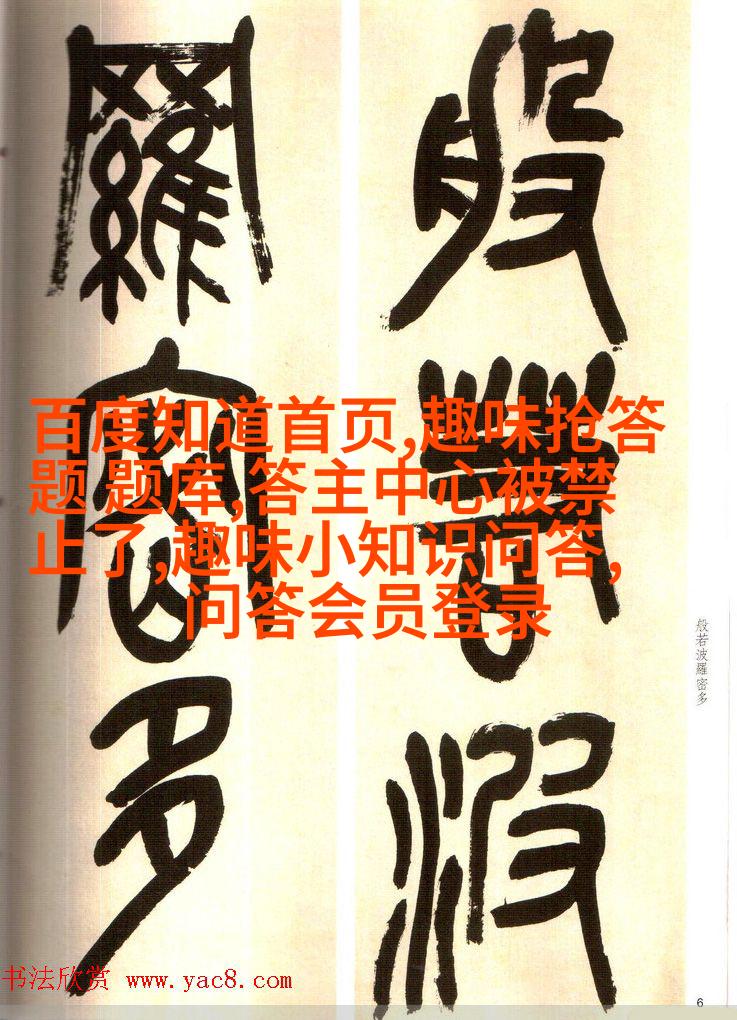 般若波
羅密多
百度知道首页,趣味抢答
题 题库,答主中心被禁
止了,趣味小知识问答,
问答会员登录
般若波羅密多
书法欣赏 www.yac8.com
6